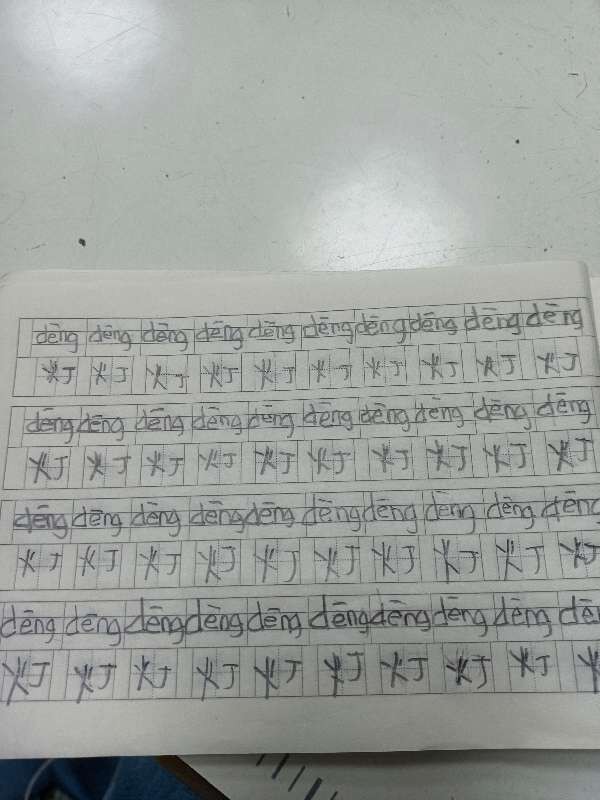 dēng dēng dēng dēng dēng dēng dēng dēng dēng dēng
灯 灯 灯 灯 灯 灯 灯 灯 灯 灯
dēng dēng dēng dēng dēng dēng dēng dēng dēng dēng
灯 灯 灯 灯 灯 灯 灯 灯 灯 灯
dēng dēng dēng dēng dēng dēng dēng dēng dēng dēng
灯 灯 灯 灯 灯 灯 灯 灯 灯 灯
dēng dēng dēng dēng dēng dēng dēng dēng dēng dē
灯 灯 灯 灯 灯 灯 灯 灯 灯